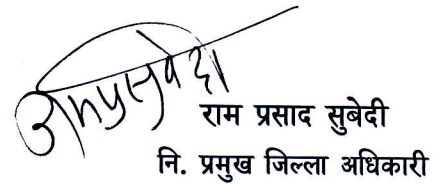 राम प्रसाद सुबेदी
नि. प्रमुख जिल्ला अधिकारी